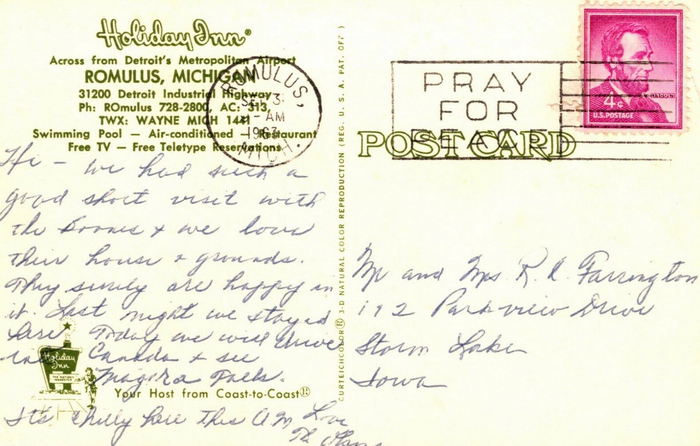 Holiday Inn®
Across from Detroit's Metropolitan Airport
ROMULUS, MICHIGAN
31200 Detroit Industrial Highway
Ph: ROmulus 728-2800, AC: 313,
TWX: WAYNE MICH 1441
Swimming Pool — Air-conditioned — Restaurant
Free TV — Free Teletype Reservations
Hi - We had such a
good short visit with
the Boones & we love
their house & grounds.
They surely are happy in
it. Last night we stayed
here. Today we will drive
into Canada & see
Niagra Falls.
It's chilly here this A.M.
Love
The
Holiday
Inn
Your Host from Coast-to-Coast
CURTEICHCOLOR® 3-D NATURAL COLOR REPRODUCTION (REG. U. S. A. PAT. OFF.)
ROMULUS,
3
AM
MICH.
PRAY
FOR
PEACE
LINCOLN
4¢
U.S. POSTAGE
POST CARD
Mr and Mrs. R. A. Farrington
192 Parkview Drive
Storm Lake
Iowa